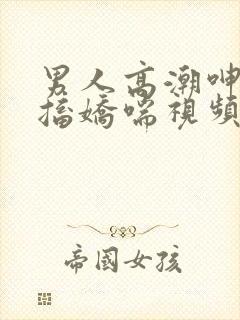 男人高潮呻
擂嬌喘視頻
帝國女孩